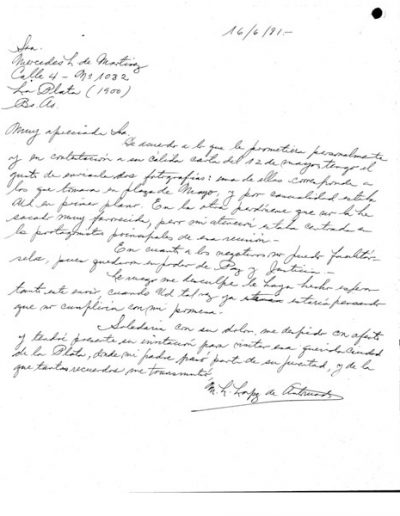 16/6/81.-
Sra.
Mercedes L. de Martinez
Calle 4 - Nº 1032
La Plata (1900)
Bs. As.
Muy apreciada Sra.
De acuerdo a lo que le prometiera personalmente
y en contestación a su cálida carta del 12 de mayo, tengo el
gusto de enviarle dos fotografías: una de ellas corresponde a
las que tomara en plaza de Mayo, y por casualidad estaba
Ud. en primer plano. En la otra perdóneme que no la he
sacado muy favorecida, pero mi atención estaba centrada en
los protagonistas principales de esa reunión.-
En cuanto a los negativos no puedo facilitár-
selos, pues quedaron en poder de Paz y Justicia.-
Le ruego me disculpe le haya hecho esperar
tanto este envío cuando Ud. tal vez ya estaría pensando
que no cumpliría con mi promesa.-
Solidaria con su dolor, me despido con afecto
y tendré presente su invitación para visitar esa querida ciudad
de La Plata, donde mi padre pasó parte de su juventud, y de la
que tantos recuerdos me transmitió.
M. L. Lopez de